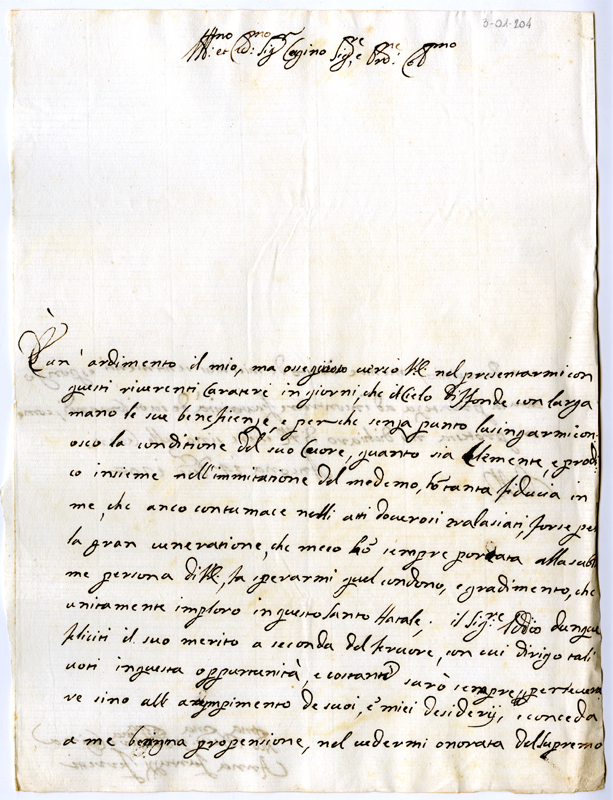 3-01-204
Ill.mo et Ecc.mo Sig.r Sig.re e Pro.ne Col.mo
È un' ardimento il mio, ma ossequioso verso V.E. nel presentarmi con
questi riverenti Carateri in giorni, che il Cielo diffonde con larga
mano le sue beneficenze, e perche senza punto lusingarmi con-
osco la conditione del suo Cuore, quanto sia Clemente, e prodi-
co insieme nell'immitatione del medemo, hò tanta fiducia in
me, che anco contumace nelli atti doverosi tralasciati, forse per
la gran veneratione, che meco hò sempre portata alla subli-
me persona di V.E., fa sperarmi quel condono, e gradimento, che
unitamente imploro in questo Santo Natale; il Sig.re Iddio dunque
feliciti il suo merito a seconda del fervore, con cui dirigo tali
voti in questa opportunità, e costante sarò sempre, e persevera
re sino all' adempimento de suoi, e miei desiderij, e conceda
a me benigna propensione, nel vedermi onorata del supremo